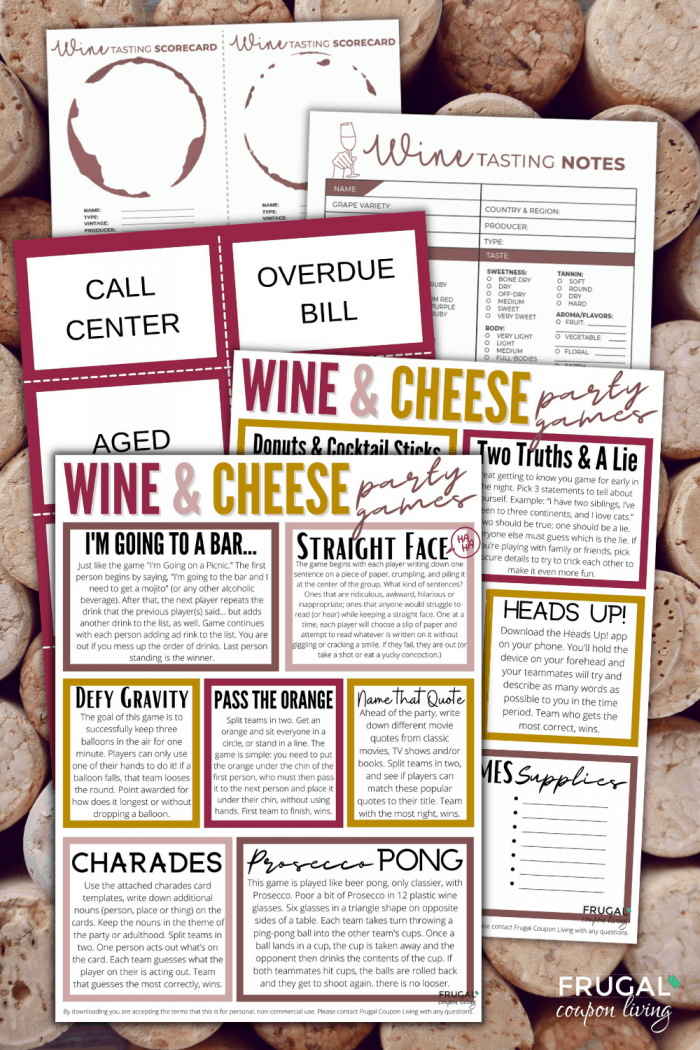 Wine TASTING SCORECARD
Wine TASTING SCORECARD
NAME:
TYPE:
VINTAGE:
PRODUCER:
NAME:
TYPE:
VINTAGE:
Wine TASTING NOTES
NAME:
GRAPE VARIETY:
COUNTRY & REGION:
PRODUCER:
TYPE:
TASTE:
SWEETNESS:
BONE DRY
DRY
OFF-DRY
MEDIUM
SWEET
VERY SWEET
BODY:
VERY LIGHT
LIGHT
MEDIUM
FULL-BODIES
TANNIN:
SOFT
ROUND
DRY
HARD
AROMA/FLAVORS:
FRUIT:
VEGETABLE:
FLORAL:
CALL
CENTER
OVERDUE
BILL
AGED
WINE & CHEESE party
games
Donuts & Cocktail Sticks
Two Truths & A Lie
getting to know you game for early in
the night. Pick 3 statements to tell about
Example: "I have two siblings, I've
to three continents, and I love cats."
should be true; one should be a lie.
else must guess which is the lie. If
playing with family or friends, pick
details to try to trick each other to
make it even more fun.
HEADS UP!
Download the Heads Up! app
on your phone. You'll hold the
device on your forehead and
your teammates will try and
describe as many words as
possible to you in the time
period. Team who gets the
most correct, wins.
Supplies
FRUGAL
coupon living
contact Frugal Coupon Living with any questions.
WINE & CHEESE party
games
I'M GOING TO A BAR...
Just like the game "I'm Going on a Picnic." The first
person begins by saying, "I'm going to the bar and I
need to get a mojito" (or any other alcoholic
beverage). After that, the next player repeates the
drink that the previous player(s) said... but adds
another drink to the list, as well. Game continues
with each person adding ad rink to the list. You are
out if you mess up the order of drinks. Last person
standing is the winner.
STRAIGHT FACE
HA
HA
The game begins with each player writing down one
sentence on a piece of paper, crumpling, and piling it
at the center of the group. What kind of sentences?
Ones that are ridiculous, awkward, hilarious or
inappropriate; ones that anyone would struggle to
read (or hear) while keeping a straight face. One at a
time, each player will choose a slip of paper and
attempt to read whatever is written on it without
giggling or cracking a smile. If they fail, they are out (or
take a shot or eat a yucky concoction.)
DEFY GRAVITY
The goal of this game is to
successfully keep three
balloons in the air for one
minute. Players can only use
one of their hands to do it! If a
balloon falls, that team looses
the round. Point awarded for
how does it longest or without
dropping a balloon.
PASS THE ORANGE
Split teams in two. Get an
orange and sit everyone in a
circle, or stand in a line. The
game is simple: you need to put
the orange under the chin of the
first person, who must then pass
it to the next person and place it
under their chin, without using
hands. First team to finish, wins.
Name that Quote
Ahead of the party, write
down different movie
quotes from classic
movies, TV shows and/or
books. Split teams in two,
and see if players can
match these popular
quotes to their title. Team
with the most right, wins.
CHARADES
Use the attached charades card
templates, write down additional
nouns (person, place or thing) on the
cards. Keep the nouns in the theme of
the party or adulthood. Split teams in
two. One person acts out what's on
the card. Each team guesses what the
player on their is acting out. Team
that guesses the most correctly, wins.
Prosecco PONG
This game is played like beer pong, only classier, with
Prosecco. Poor a bit of Prosecco in 12 plastic wine
glasses. Six glasses in a triangle shape on opposite
sides of a table. Each team takes turn throwing a
ping-pong ball into the other team's cups. Once a
ball lands in a cup, the cup is taken away and the
opponent then drinks the contents of the cup. If
both teammates hit cups, the balls are rolled back
and they get to shoot again. there is no looser.
FRUGAL
coupon living
By downloading you are accepting the terms that this is for personal, non-commercial use. Please contact Frugal Coupon Living with any questions.
FRUGAL
coupon living